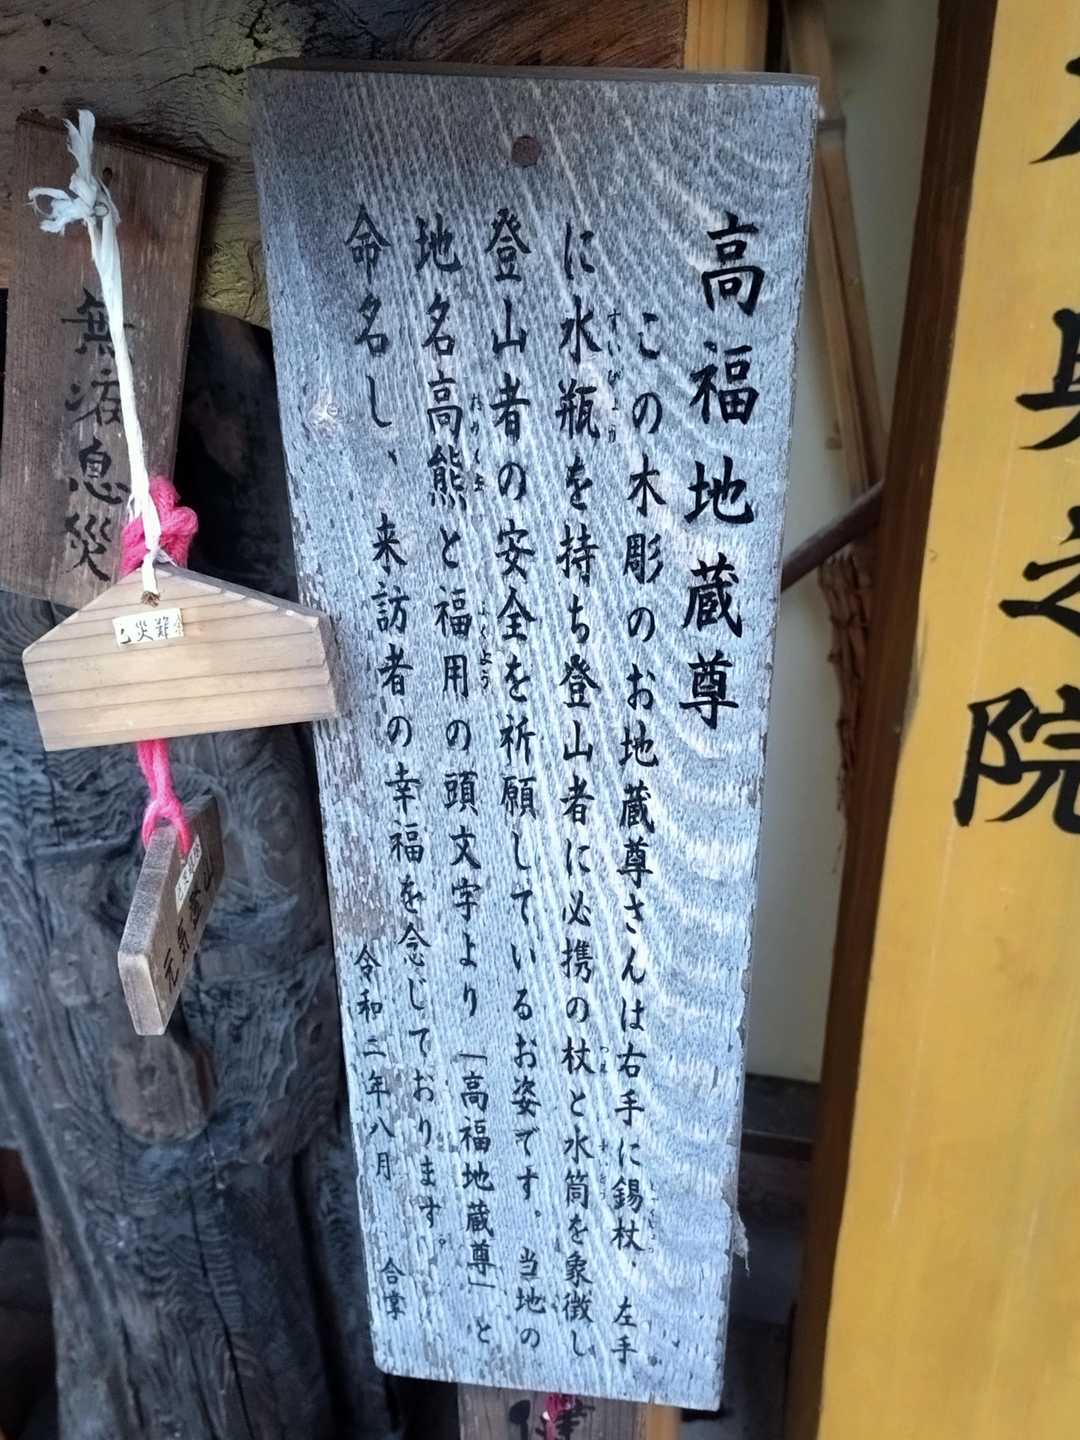 高福地蔵尊
この木彫のお地蔵尊さんは右手に錫杖、左手
に水瓶を持ち登山者に必携の杖と水筒を象徴し
登山者の安全を祈願しているお姿です。当地の
地名高熊と福用の頭文字より「高福地蔵尊」と
命名し、来訪者の幸福を念じております。
令和二年八月 合掌
すいびょう
つえ
すいとう
たかくま
ふくよう
無病息災
元気登山
之院